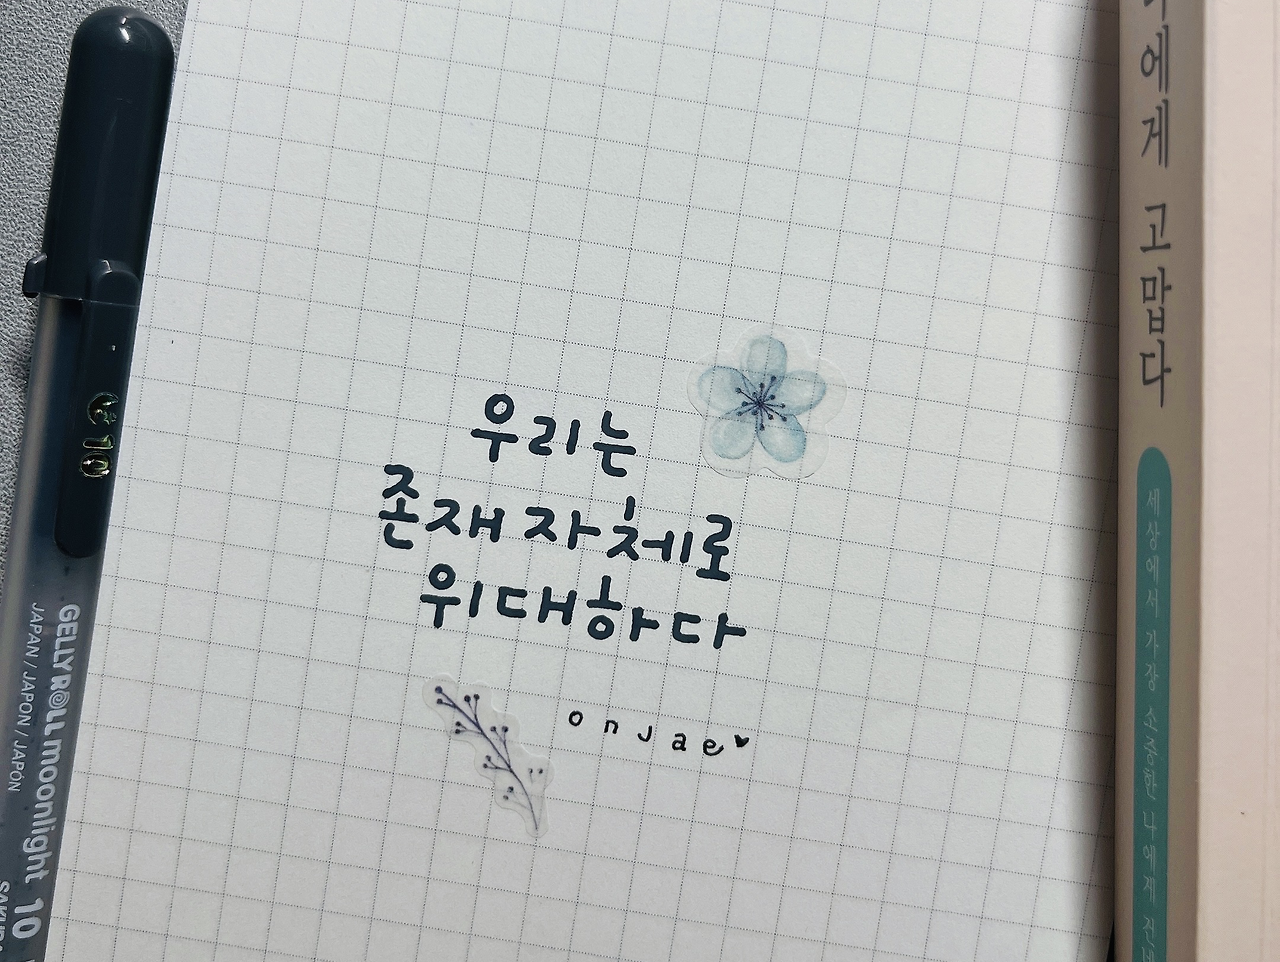 우리는
존재 자체로
위대하다
onjae
10
GELLYROLL moonlight 10
JAPAN / JAPON / JAPÓN
에게 고맙다
세상에서 가장 소중한 나에게